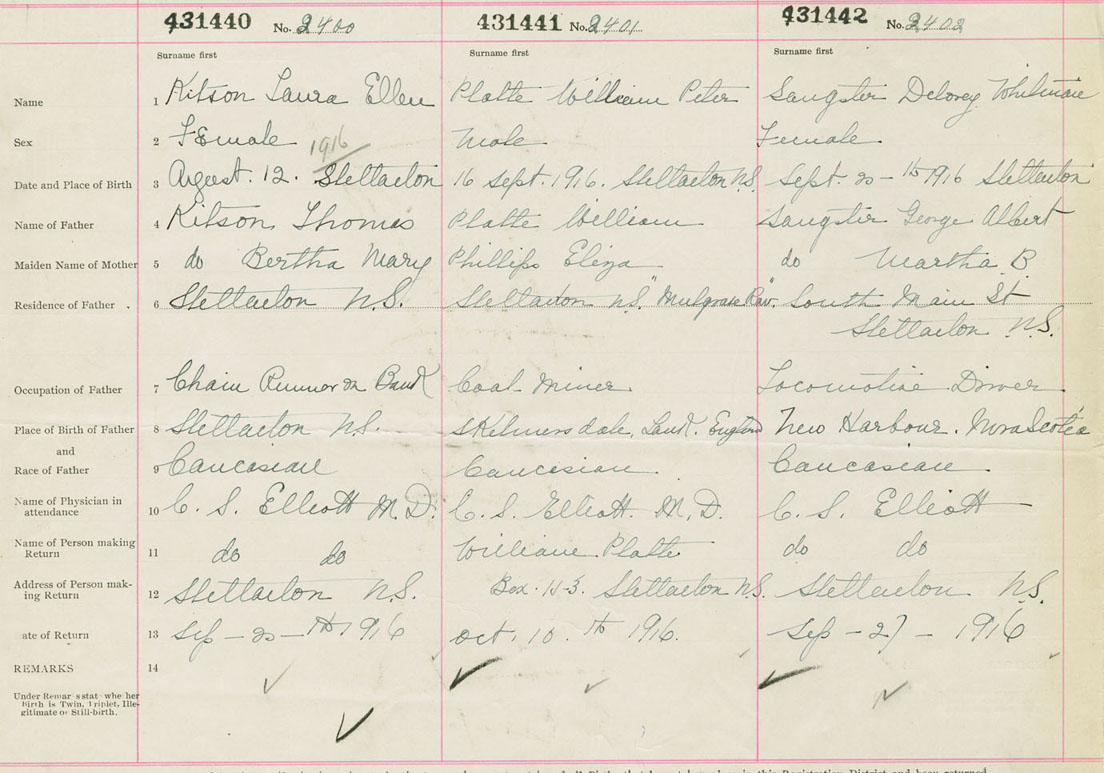 431440 No. 2400 431441 No. 2401 431442 No. 2402
Surname first Surname first Surname first
Name 1 Kitson Laura Ellen Platte William Peter Sangster Delorey Whitman
Sex 2 Female Male Female
1916
Date and Place of Birth 3 August. 12. Stellarton 16 Sept. 1916. Stellarton N.S. Sept. 20 - th 1916 Stellarton
Name of Father 4 Kitson, Thomas Platte William Sangster George Albert
Maiden Name of Mother 5 do Bertha Mary Phillips Eliza do Martha B
Residence of Father . 6 Stellarton N.S. Stellarton N.S. "Mulgrave Row. South Main St
Stellarton N.S.
Occupation of Father 7 Chain Runner on Bank Coal Miner Locomotive Driver
Place of Birth of Father 8 Stellarton N.S. Skelmersdale, Lank. England New Harbour. Nova Scotia
and
Race of Father 9 Caucasian Caucasian Caucasian
Name of Physician in
attendance 10 C. S. Elliott M.D. C. S. Elliott. M.D. C. S. Elliott
Name of Person making
Return 11 do do William Platte do do
Address of Person mak-
ing Return 12 Stellarton N.S. Box. Stellarton N.S. Stellarton N.S.
ate of Return 13 Sep - 20 - th 1916 Oct. 10. th 1916. Sep - 27 - 1916
REMARKS 14
Under Remar s stat whe her
birth is Twin, Triplet, Ille-
gitimate or Still-birth.